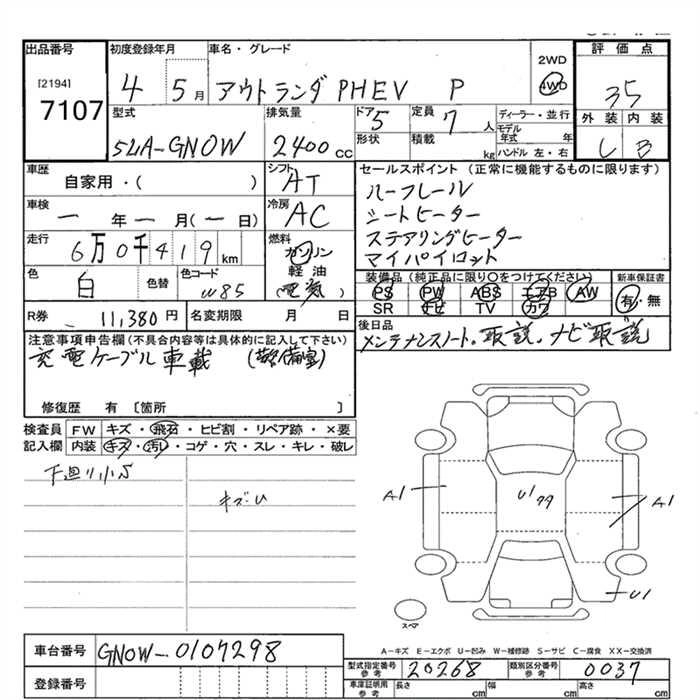 出品番号 初度登録年月 車名・グレード 2WD 評価点
[2194] 4 5月 アウトランダPHEV P 4WD 35
7107
型式 排気量 ドア 5 定員 7人 ディーラー・並行 外装 内装
5LA-GN0W 2400cc 形状 積載 kg モデル年式 年 C B
ハンドル 左・右
車歴 シフト セールスポイント(正常に機能するものに限ります)
自家用・( ) AT ハーフレール
車検 冷房 シートヒーター
一年一月(一日) AC ステアリングヒーター
走行 燃料 マイパイロット
6万0千419km ガソリン
軽油
(電気)
色 白 色替 色コード W85
装備品(純正品に限り○をつけてください) 新車保証書
PS PW ABS エアB AW 有・無
SR ナビ TV カワ
R券 11,380円 名変期限 月 日
後日品
メンテナンスノート、取説、ナビ取説
注意事項申告欄(不具合内容等は具体的に記入して下さい)
充電ケーブル車載
修復歴 有 〔箇所 〕
検査員 FW キズ・飛石・ヒビ割・リペア跡・×要
記入欄 内装 キズ・汚レ・コゲ・穴・スレ・キレ・破レ
下廻り小S
キズU
A1
U1
A1
U1
スペア
A-キズ E-エクボ U-凹み W-補修跡 S-サビ C-腐食 XX-交換済
車台番号 GN0W-0107298
型式指定番号 参考 20268 類別区分番号 参考 0037
登録番号
車庫証明用 参考 長さ cm 幅 cm 高さ cm